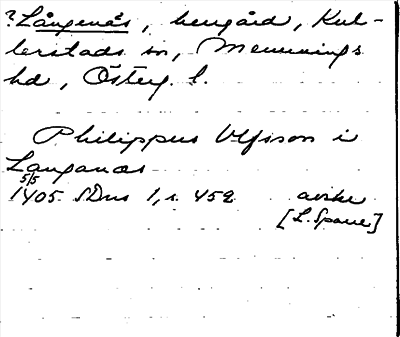 ? Långenäs, herrgård, Kul-
lerstads sn, Memmings
hd, Österg. l.
Philippus Ulfsson i
Langanæs
5/5
1405 SDns 1, s. 452 avskr
[L. Sparre]